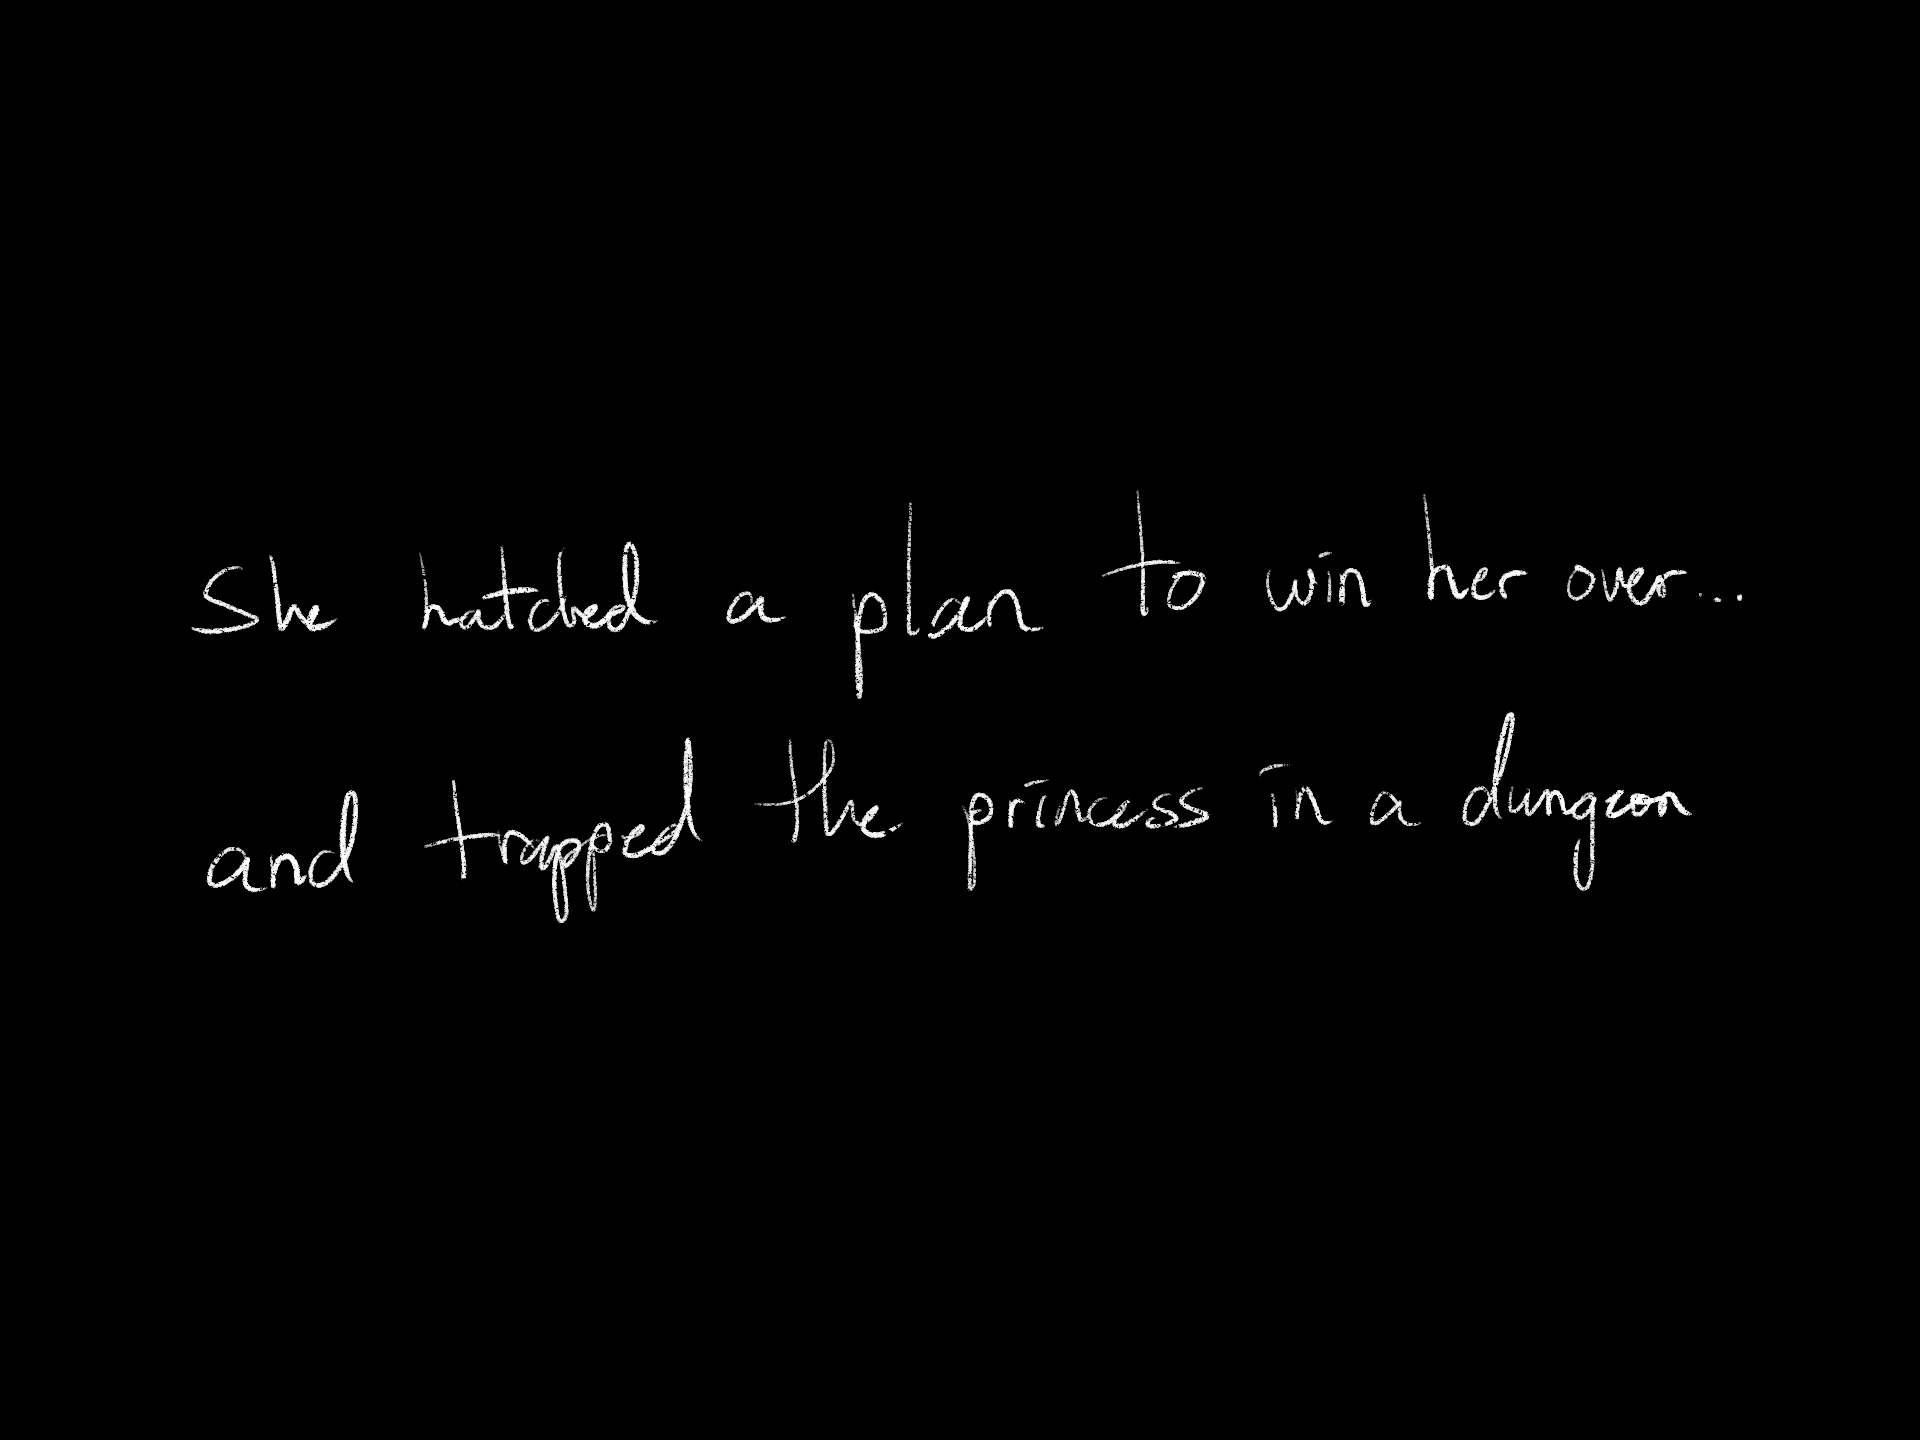 She hatched a plan to win her over...
and trapped the princess in a dungeon